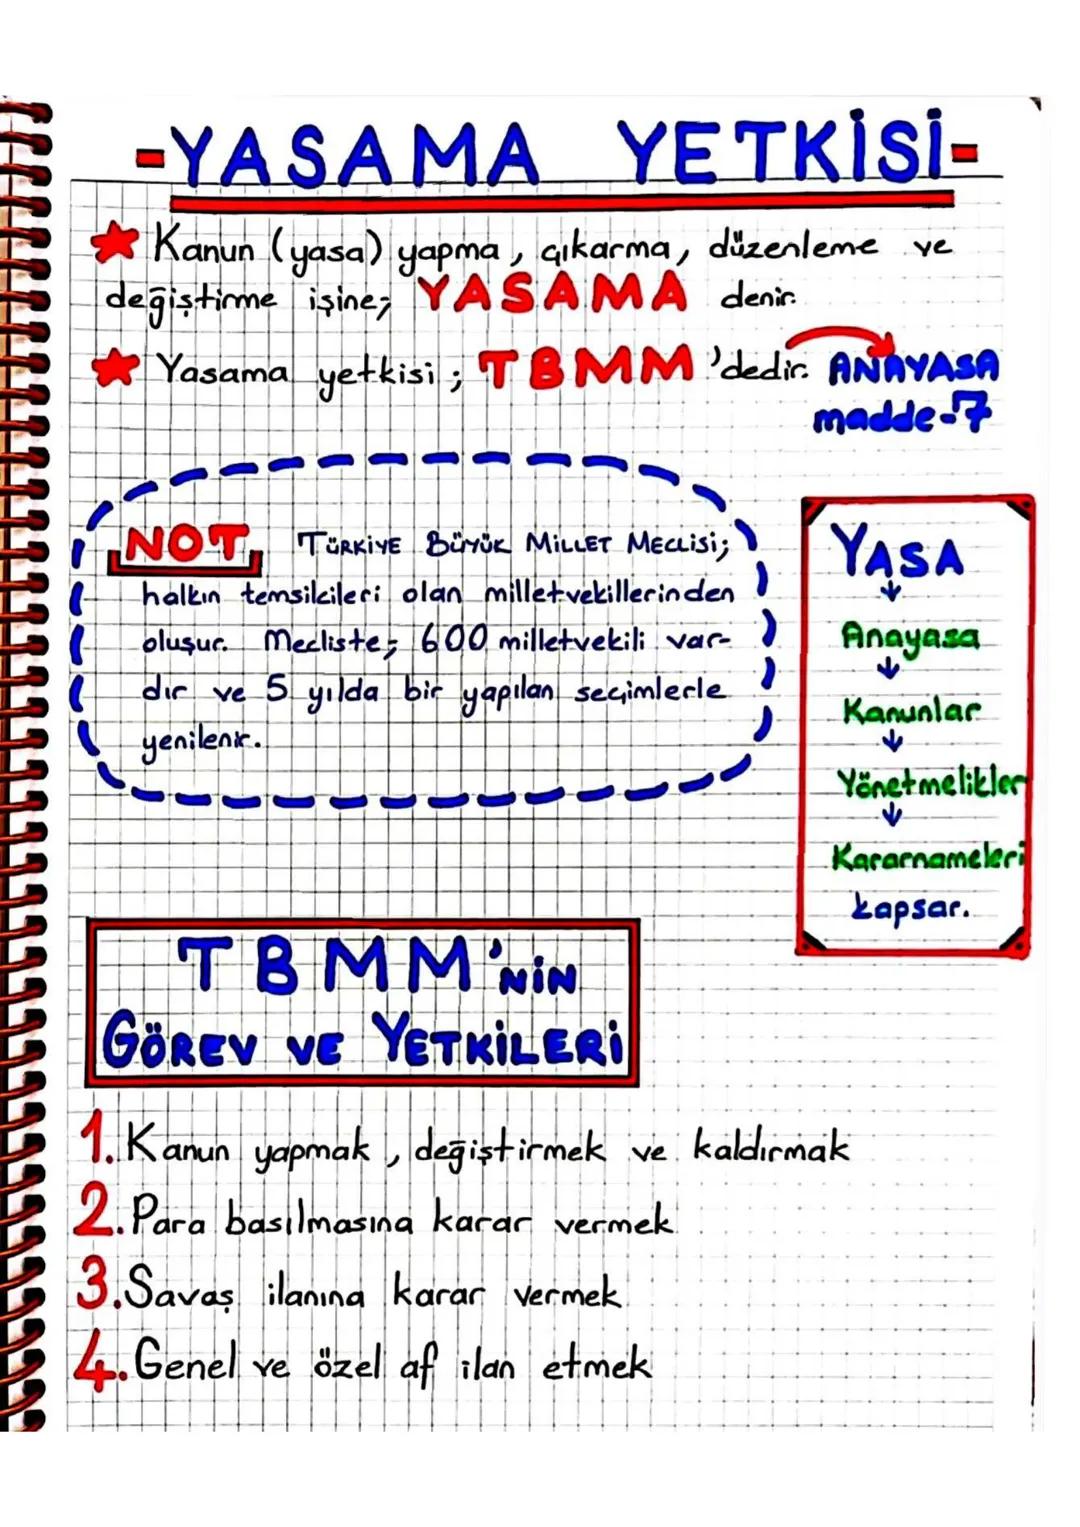 -YASAMA YETKİSİ-
Kanun (yasa) yapma, çıkarma, düzenleme ve
değiştirme işine; YASAMA denir.
Yasama yetkisi; TBMM'dedir. ANAYASA
madde-7
NOT TÜRKİYE BÜYÜK MİLLET MECLİSİ;
halkın temsilcileri olan milletvekillerinden
oluşur. Mecliste; 600 milletvekili var-
dır ve 5 yılda bir yapılan seçimlerle
yenilenir.
YASA
↓
Anayasa
↓
Kanunlar
↓
Yönetmelikler
↓
Kararnameleri
kapsar.
TBMM'NİN
GÖREV VE YETKİLERİ
1. Kanun yapmak, değiştirmek ve kaldırmak
2. Para basılmasına karar vermek
3. Savaş ilanına karar vermek
4. Genel ve özel af ilan etmek